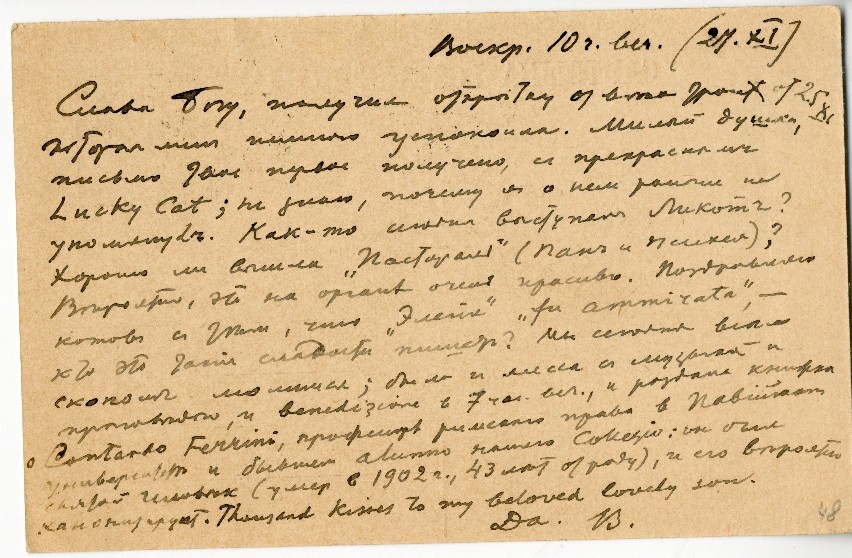 Воскр. 10 ч. веч. (27. XI)
Слава Богу, получил открытку от 25 XI,
которая меня немного успокоила. Милый душка,
письмо твое первое получено, с прекрасным
Lucky Cat; не знаю, почему я о нем раньше не
упомянулъ. Как-то сегодня выступал Ликотъ?
Хорошо ли вышла „Пастораль" (Панъ и Психея)?
Вероятно, это на органѣ очень красиво. Поздравляю
котова с тѣмъ, что „Элегiя" „fu ammirata", —
кто это такiя сладости пишетъ? Мы сегодня
скопомъ молимся; была и месса с музыкой и
проповѣдью, и benedizione в 7 час. веч., и раздача книжки
о Contardo Ferrini, профессорѣ римского права в Павiйскомъ
университетѣ и бывшем alunno нашего Collegio: он был
святой человѣк (умер в 1902 г., 43 лѣт от роду), и его вероятно
канонизируют. Thousand kisses to my beloved lovely son.
Da. В.
48